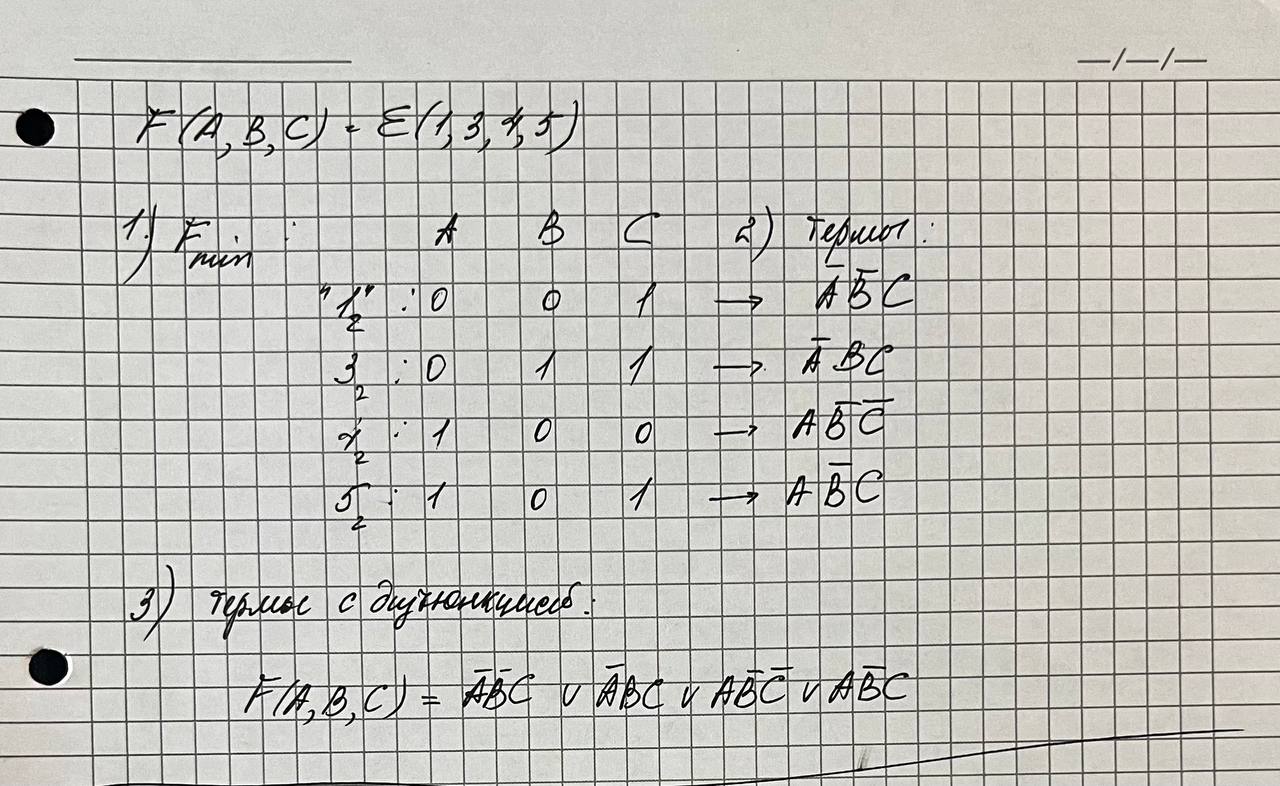 F(A,B,C) = Σ(1,3,4,5)
1) Fmin : A B C 2) термы:
"1"₂ : 0 0 1 → A̅ B̅ C
3₂ : 0 1 1 → A̅ B C
4₂ : 1 0 0 → A B̅ C̅
5₂ : 1 0 1 → A B̅ C
3) термы с дизъюнкцией:
F(A,B,C) = A̅B̅C ∨ A̅BC ∨ AB̅C̅ ∨ AB̅C